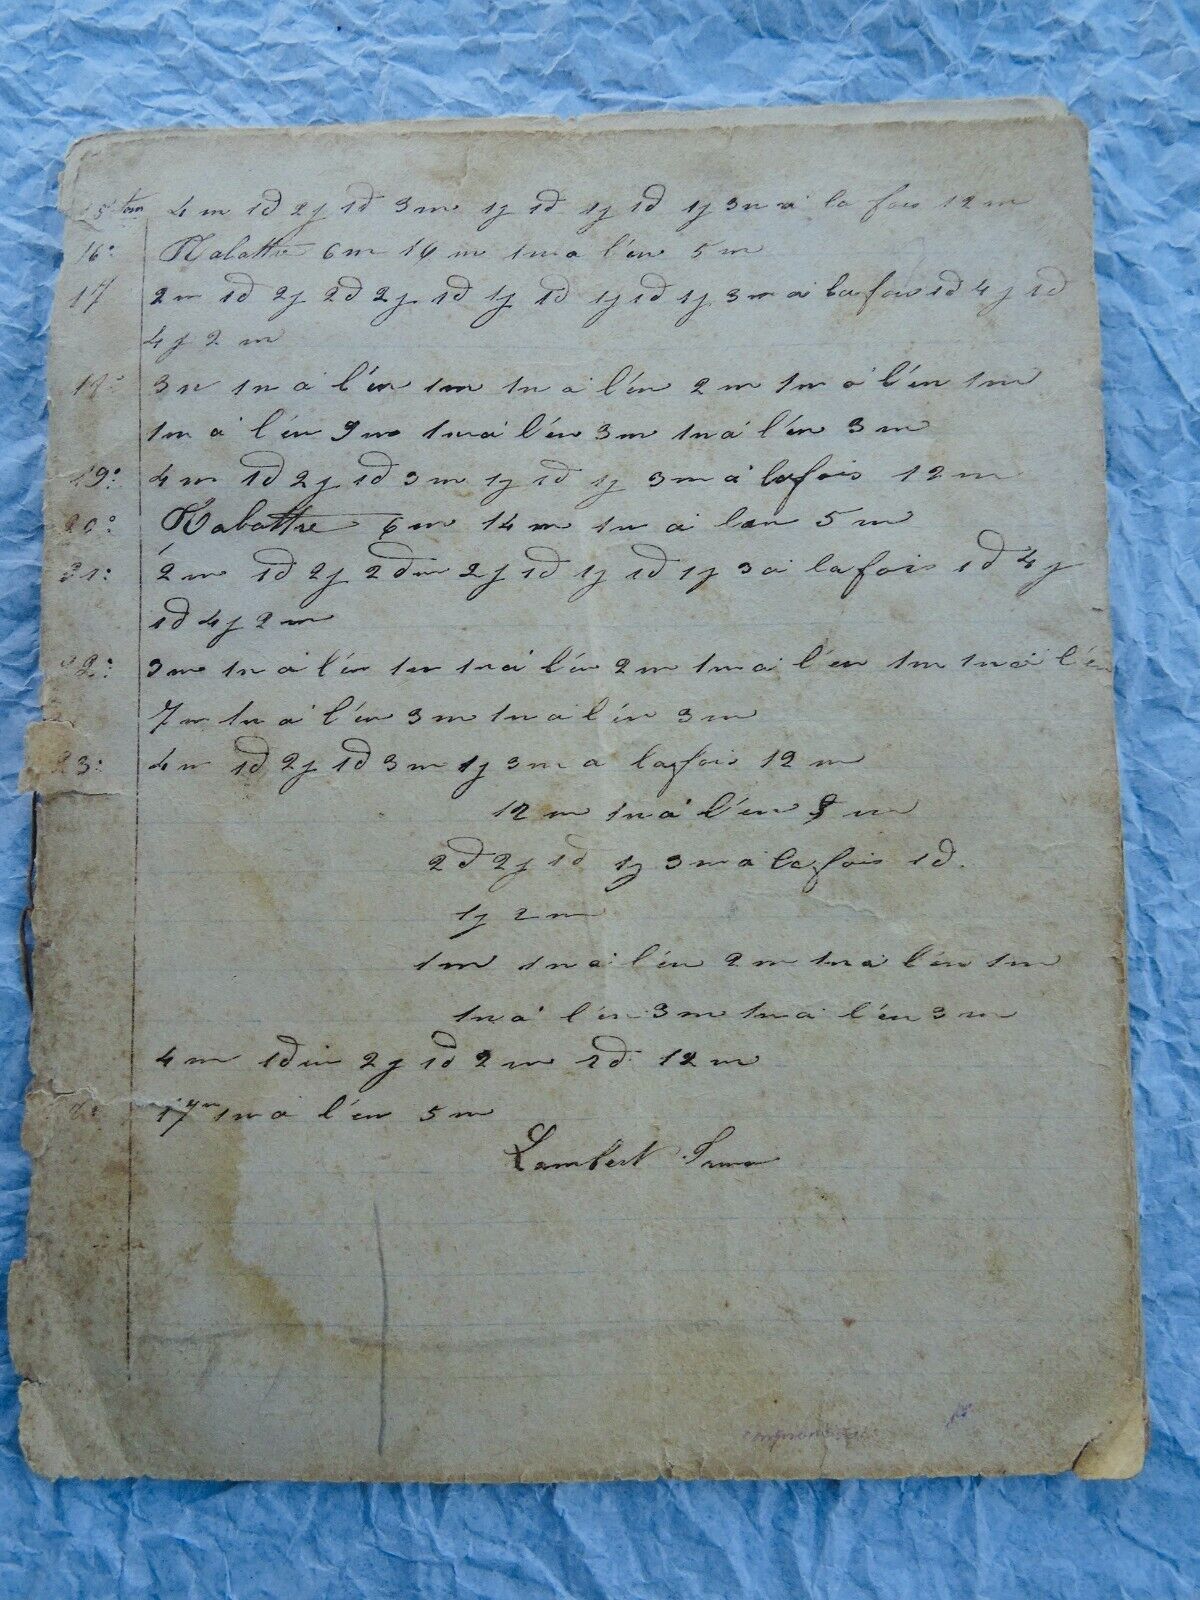 15 tour 4 m 1d 2j 1d 3m 1j 1d 1j 1d 1j 3m à la fois 12 m
16° Rabattre 6 m 14 m 1m à l'en 5 m
17 2 m 1d 2j 2d 2j 1d 1j 1d 1j 1d 1j 3m à la fois 1d 4j 1d
4j 2 m
18° 3 m 1m à l'en 1m 1m à l'en 2 m 1m à l'en 1m
1m à l'en 9 m 1m à l'en 3m 1m à l'en 3 m
19° 4 m 1d 2j 1d 3 m 1j 1d 1j 3m à la fois 12 m
20° Rabattre 6m 14 m 1m à l'en 5 m
21: 2 m 1d 2j 2dm 2j 1d 1j 1d 1j 3 à la fois 1d 4j
1d 4j 2 m
22: 3m 1m à l'en 1m 1m à l'en 2m 1m à l'en 1m 1m à l'en
7 m 1m à l'en 3 m 1m à l'en 3 m
23: 4 m 1d 2j 1d 3 m 1j 3m à la fois 12 m
12 m 1m à l'en m
2d 2j 1d 1j 3 m à la fois 1d.
1j 2 m
1m 1m à l'en 2 m 1m à l'en 1m
1m à l'en 3 m 1m à l'en 3 m
4 m 1d 2j 1d 2 m 1d 12 m
17m 1m à l'en 5 m
Lambert